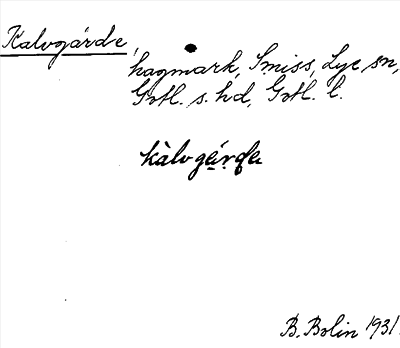 Kalvgärde,
hagmark, Smiss, Lye sn,
Gotl. s. hd, Gotl. l.
kàlvgạ̈ṛdɐ
B. Bolin 1931.